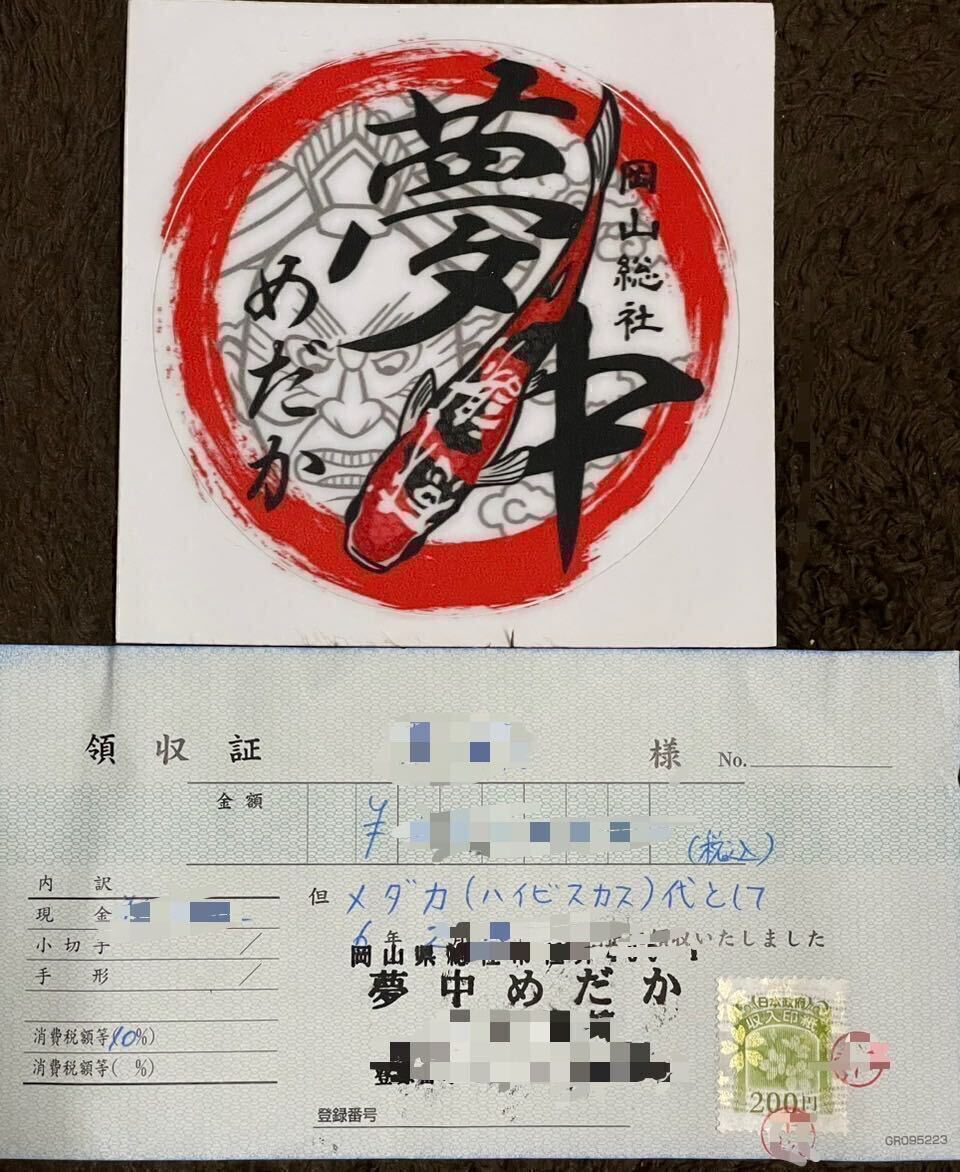 夢中
めだか
岡山総社
領収証
様
No.
金額
¥
(税込)
内訳
現金
小切手
手形
消費税額等(10%)
消費税額等( %)
但 メダカ(ハイビスカス)代として
6年2
収いたしました
岡山県
夢中めだか
登録番号
日本政府
収入印紙
200円
GR095223